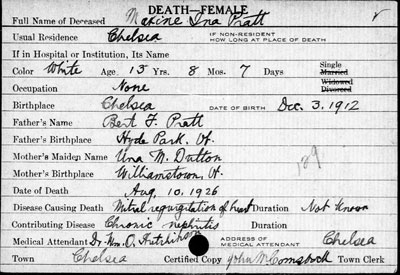 DEATH—FEMALE
Full Name of Deceased Maxine Ina Pratt
Usual Residence Chelsea IF NON-RESIDENT HOW LONG AT PLACE OF DEATH
If in Hospital or Institution, Its Name
Color White Age 13 Yrs. 8 Mos. 7 Days Single Married Widowed Divorced
Occupation None
Birthplace Chelsea DATE OF BIRTH Dec. 3, 1912
Father's Name Bert F. Pratt
Father's Birthplace Hyde Park, Vt.
Mother's Maiden Name Una M. Dutton
Mother's Birthplace Williamstown, Vt.
Date of Death Aug. 10, 1926
Disease Causing Death Mitral regurgitation of heart Duration Not Known
Contributing Disease Chronic nephritis Duration
Medical Attendant Dr. Wm. O. ADDRESS OF MEDICAL ATTENDANT Chelsea
Town Chelsea Certified Copy John W. Comstock Town Clerk